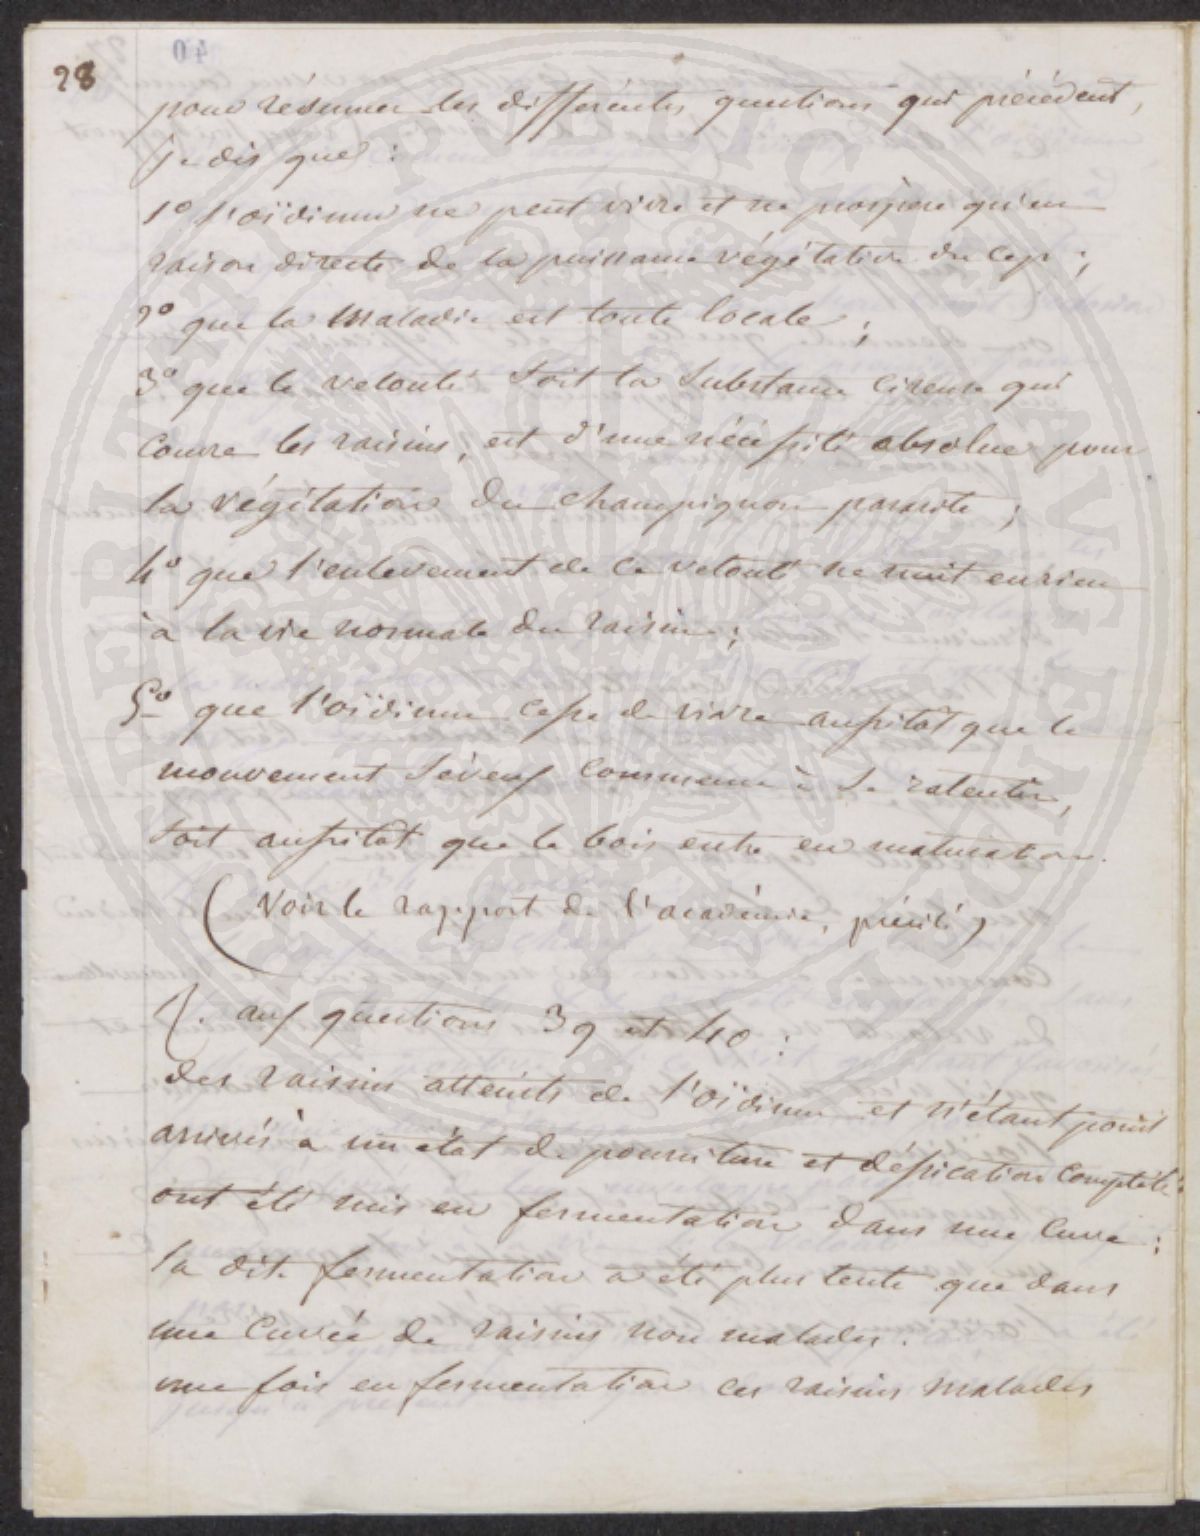 28
pour résumer les différentes questions qui précèdent,
je dis que :
1º l'oïdium ne peut vivre et ne prospère qu'en
raison directe de la puissance végétative du cep ;
2º que la maladie est toute locale ;
3º que le velouté soit la substance cireuse qui
couvre les raisins, est d'une nécessité absolue pour
la végétation du champignon parasite ;
4º que l'enlèvement de ce velouté ne nuit en rien
à la vie normale du raisin ;
5º que l'oïdium cesse de vivre aussitôt que le
mouvement séveux commence à se ralentir,
soit aussitôt que le bois entre en maturation.
(Voir le rapport de l'académie, précité)
R. aux questions 39 et 40 :
des raisins atteints de l'oïdium et n'étant point
arrivés à un état de pourriture et déssication complète
ont été mis en fermentation dans une cuve :
la dite fermentation a été plus lente que dans
une cuvée de raisins non malades.
une fois en fermentation ces raisins malades